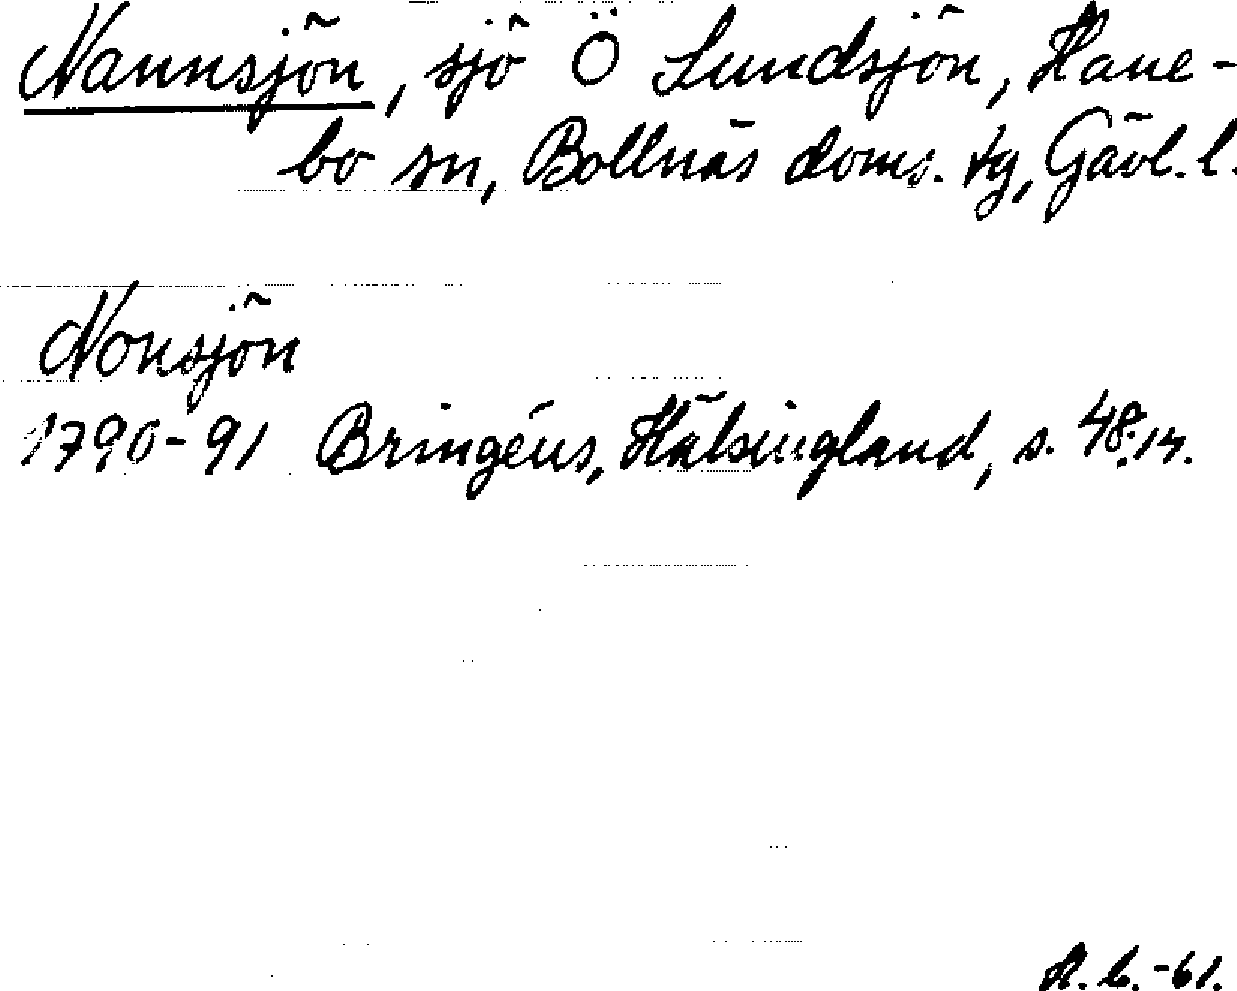 Nannsjön, sjö Ö Lundsjön, Hane-
bo sn, Bollnäs doms. tg, Gävl. l.
Nonsjön
1790-91 Bringéus, Hälsingland, s. 48.
-61.